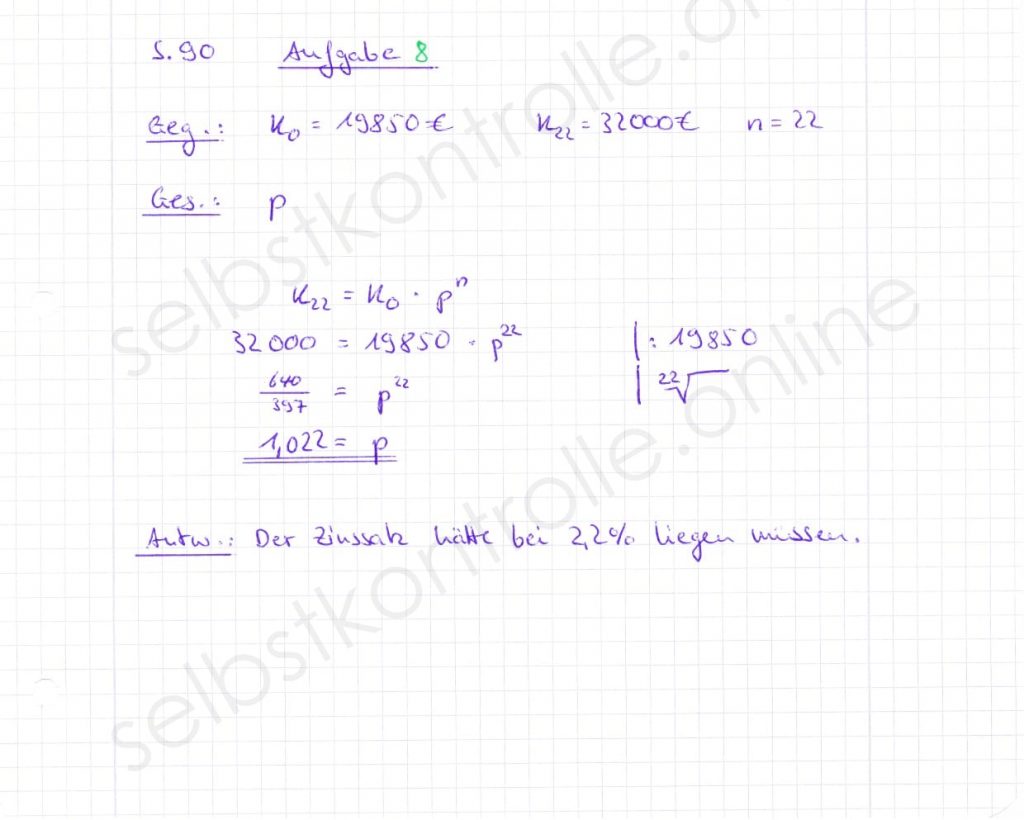 S.90 Aufgabe 8
Geg.: K₀ = 19850€ K₂₂ = 32000€ n = 22
Ges.: p
K₂₂ = K₀ · pⁿ
32000 = 19850 · p²² | : 19850
640/397 = p²² | ²²√
1,022 = p
Antw.: Der Zinssatz hätte bei 2,2% liegen müssen.
selbstkontrolle.online
selbstkontrolle.online